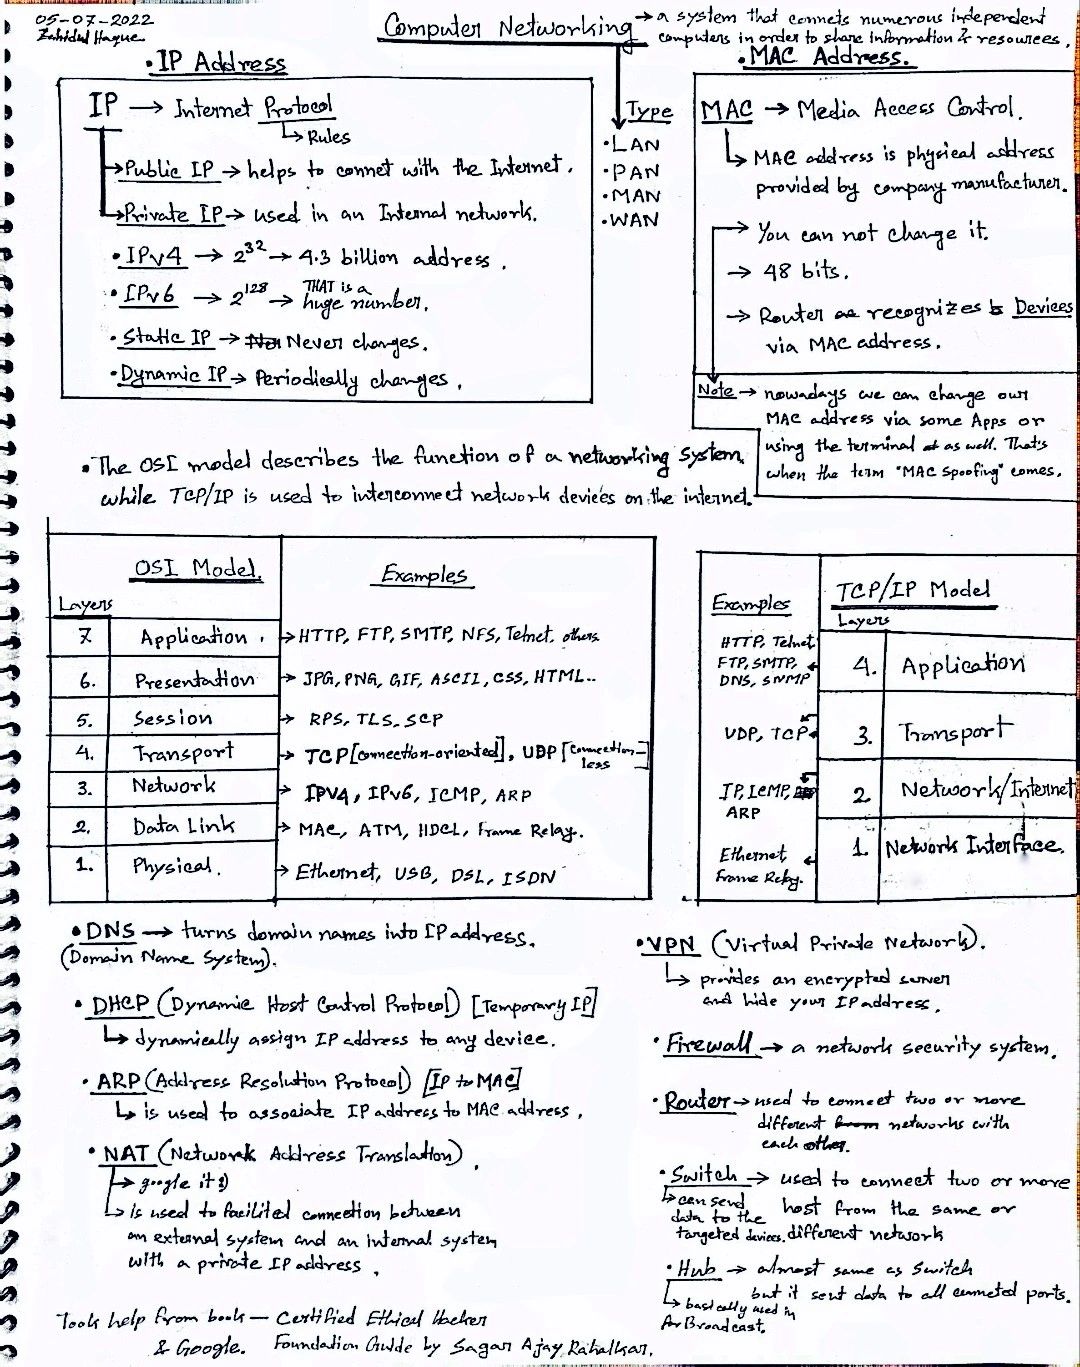 05-07-2022
Zahidul Haque
Computer Networking → a system that connets numerous independent
computers in order to share information & resources.
• IP Address
IP → Internet Protocol
↳ Rules
→ Public IP → helps to connet with the Internet.
→ Private IP → used in an Internal network.
• IPv4 → 2^32 → 4.3 billion address.
• IPv6 → 2^128 → THAT is a
huge number.
• Static IP → Never changes.
• Dynamic IP → Periodically changes.
Type
• LAN
• PAN
• MAN
• WAN
• MAC Address.
MAC → Media Access Control.
↳ MAC address is physical address
provided by company manufacturer.
→ You can not change it.
→ 48 bits.
→ Router recognizes Devices
via MAC address.
Note → nowadays we can change our
MAC address via some Apps or
using the terminal as well. That's
when the term "MAC Spoofing" comes.
• The OSI model describes the function of a networking system.
while TCP/IP is used to interconnect network devices on the internet.
OSI Model. Examples
Layers
7. Application. → HTTP, FTP, SMTP, NFS, Telnet. others.
6. Presentation → JPG, PNG, GIF, ASCII, CSS, HTML..
5. Session → RPS, TLS, SCP
4. Transport → TCP [connection-oriented], UDP [connection-
less]
3. Network → IPV4, IPv6, ICMP, ARP
2. Data Link → MAC, ATM, HDCL, Frame Relay.
1. Physical. → Ethernet, USB, DSL, ISDN
Examples TCP/IP Model
Layers
HTTP, Telnet
FTP, SMTP,
DNS, SNMP
4. Application
UDP, TCP
3. Transport
IP, ICMP,
ARP
2. Network/Internet
Ethernet,
Frame Relay.
1. Network Interface.
• DNS → turns domain names into IP address.
(Domain Name System).
• DHCP (Dynamic Host Control Protocol) [Temporary IP]
↳ dynamically assign IP address to any device.
• ARP (Address Resolution Protocol) [IP to MAC]
↳ is used to associate IP address to MAC address.
• NAT (Network Address Translation).
→ google it :)
↳ is used to facilited connection between
an external system and an internal system
with a private IP address.
• VPN (Virtual Private Network).
↳ provides an encrypted server
and hide your IP address.
• Firewall → a network security system.
• Router → used to connect two or more
different networks with
each other.
• Switch → used to connect two or more
host from the same or
different network
↳ can send
data to the
targeted devices.
• Hub → almost same as Switch
but it sent data to all conneted ports.
↳ basically used in
Broadcast.
Took help from book — Certified Ethical Hacker
& Google. Foundation Guide by Sagar Ajay Rahalkar.